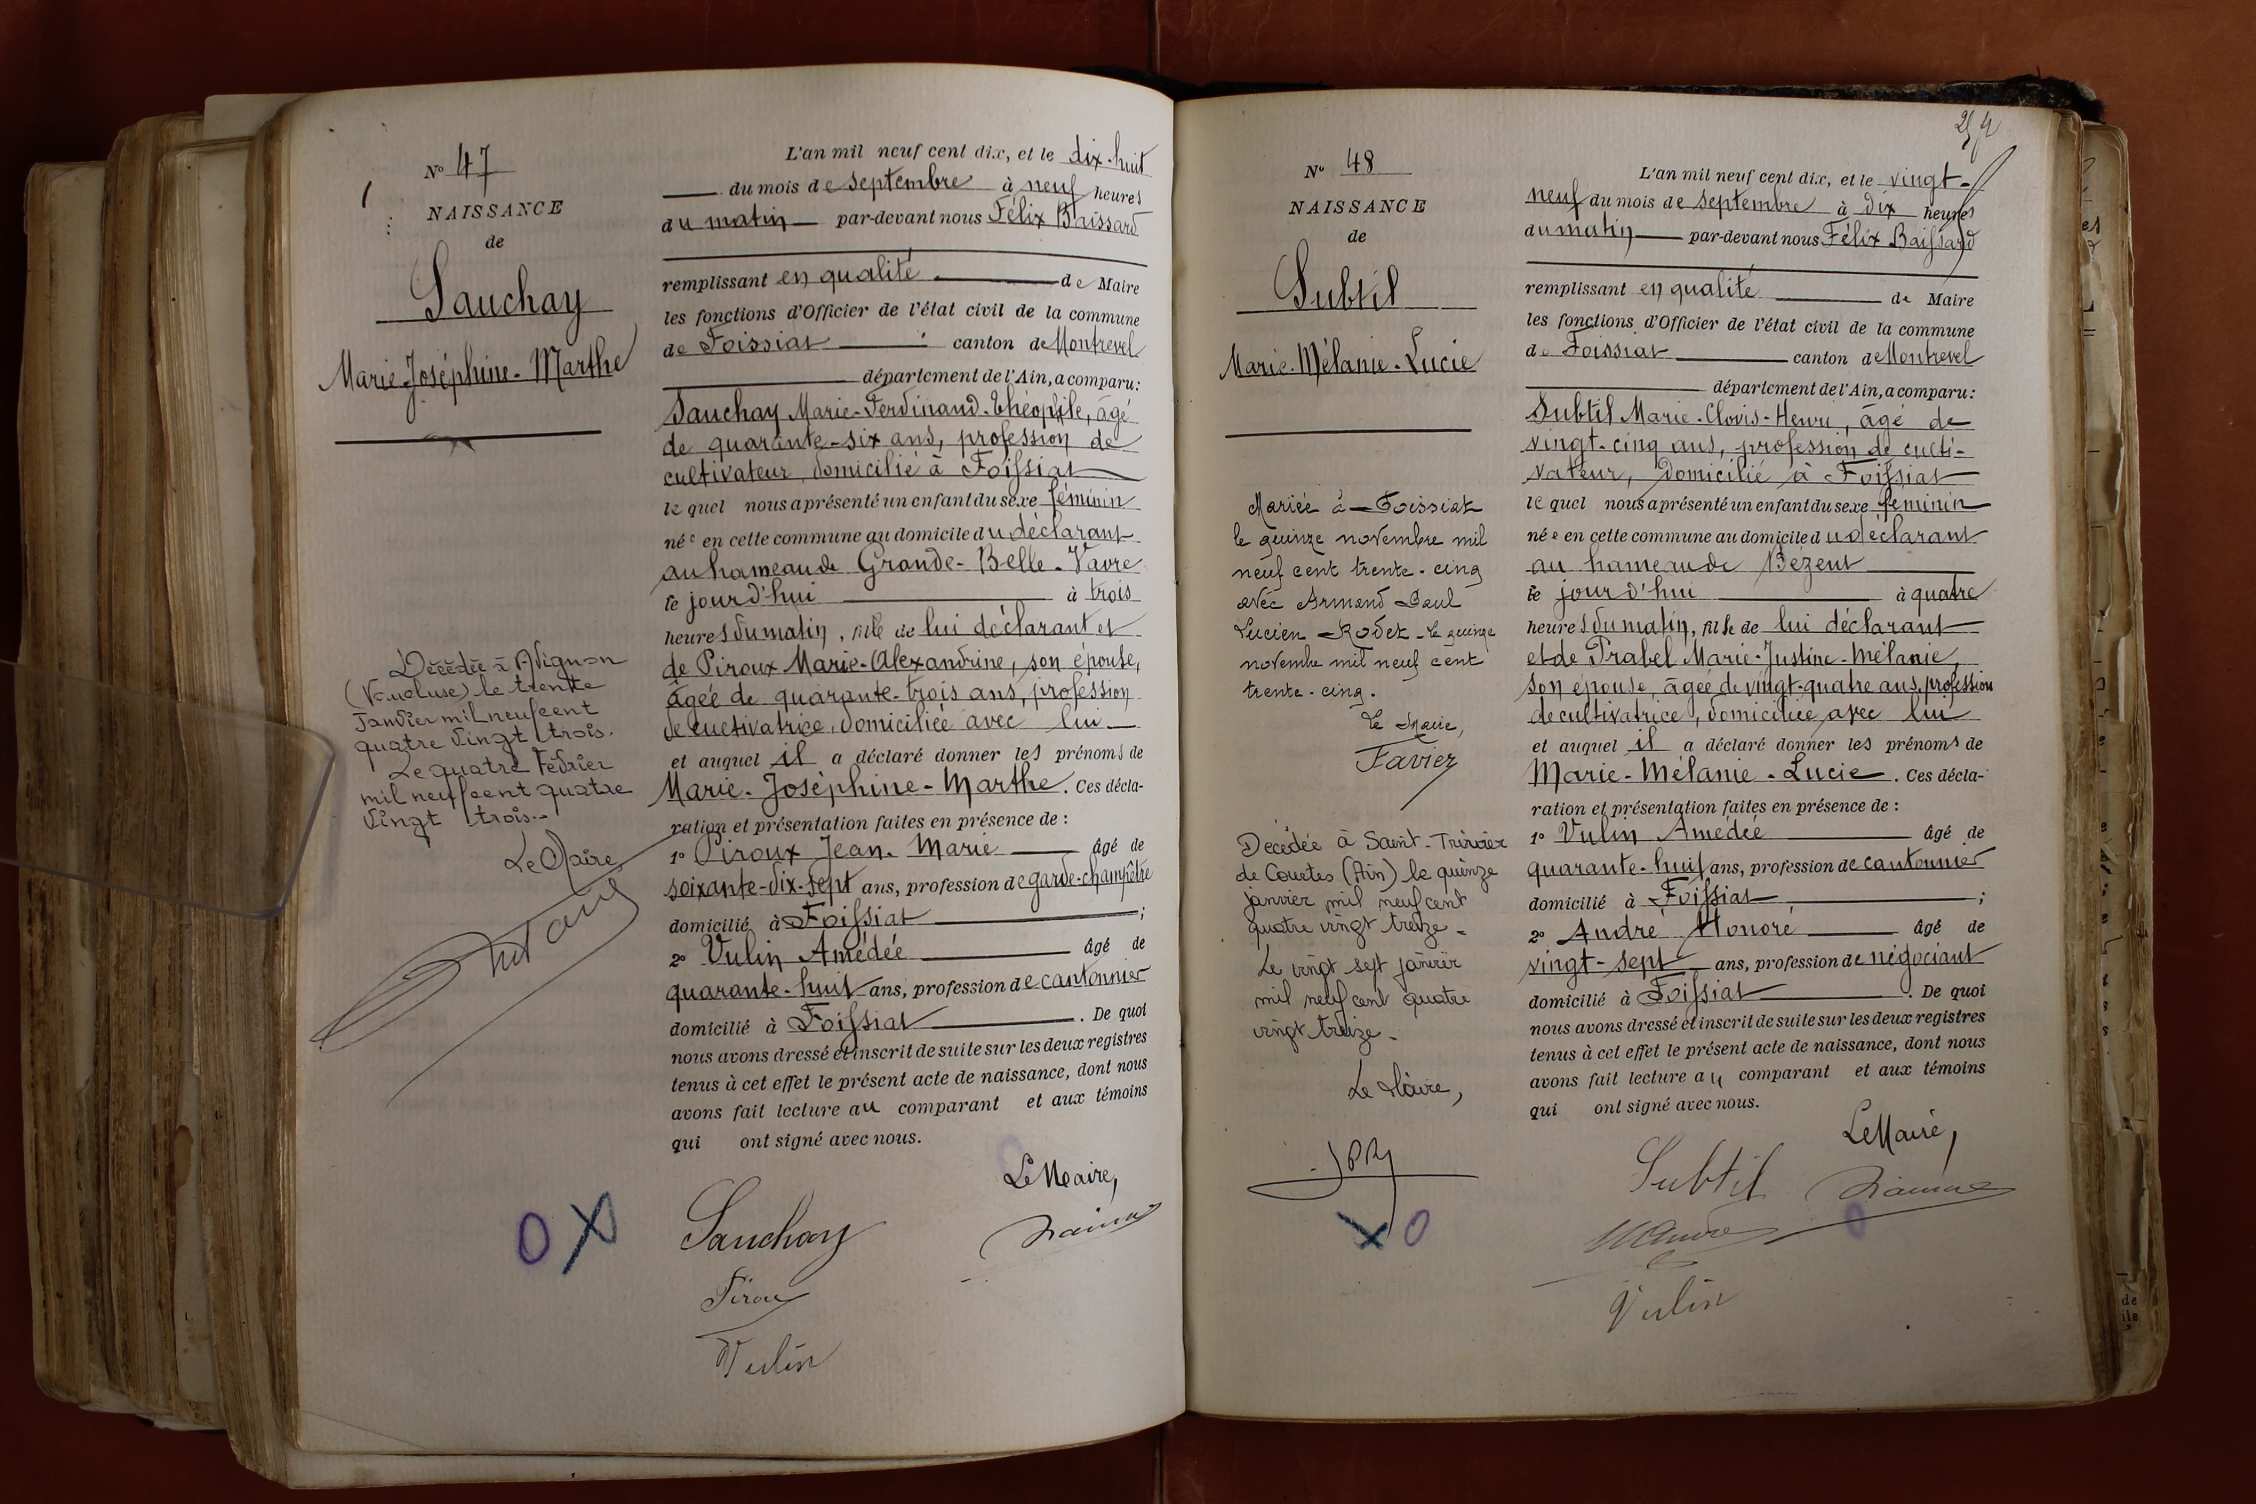 No 47
NAISSANCE
de
Sauchay
Marie-Joséphine-Marthe
Décédée à Avignon
(Vaucluse) le trente
Janvier mil neuf cent
quatre vingt trois.
Le quatre Février
mil neuf cent quatre
vingt trois.-
Le Maire
L'an mil neuf cent dix, et le dix-huit
du mois de septembre à neuf heures
du matin par-devant nous Félix Baissard
remplissant en qualité de Maire
les fonctions d'Officier de l'état civil de la commune
de Foissiat canton de Montrevel
département de l'Ain, a comparu:
Sauchay Marie-Ferdinand-Théophile, âgé
de quarante-six ans, profession de
cultivateur, domicilié à Foissiat
lequel nous a présenté un enfant du sexe féminin
née en cette commune au domicile du déclarant
au hameau de Grande-Belle-Vavre
le jourd'hui à trois
heures du matin, fille de lui déclarant et
de Piroux Marie-Alexandrine, son épouse,
âgée de quarante-trois ans, profession
de cultivatrice, domiciliée avec lui
et auquel il a déclaré donner les prénoms de
Marie-Joséphine-Marthe. Ces décla-
ration et présentation faites en présence de :
1o Piroux Jean-Marie âgé de
soixante-dix-sept ans, profession de garde-champêtre
domicilié à Foissiat ;
2o Vulin Amédée âgé de
quarante-huit ans, profession de cantonnier
domicilié à Foissiat . De quoi
nous avons dressé et inscrit de suite sur les deux registres
tenus à cet effet le présent acte de naissance, dont nous
avons fait lecture au comparant et aux témoins
qui ont signé avec nous.
Le Maire,
Sauchay
Piroux
Vulin
No 48
NAISSANCE
de
Subtil
Marie-Mélanie-Lucie
Mariée à Foissiat
le quinze novembre mil
neuf cent trente-cinq
avec Armand Paul
Lucien Rodet - le quinze
novembre mil neuf cent
trente-cinq.
Le Maire,
Favier
Décédée à Saint-Trivier
de Courtes (Ain) le quinze
janvier mil neuf cent
quatre vingt treize -
Le vingt sept janvier
mil neuf cent quatre
vingt treize -
Le Maire,
L'an mil neuf cent dix, et le vingt-
neuf du mois de septembre à dix heures
du matin par-devant nous Félix Baissard
remplissant en qualité de Maire
les fonctions d'Officier de l'état civil de la commune
de Foissiat canton de Montrevel
département de l'Ain, a comparu:
Subtil Marie-Clovis-Henri, âgé de
vingt-cinq ans, profession de culti-
vateur, domicilié à Foissiat
lequel nous a présenté un enfant du sexe féminin
née en cette commune au domicile du déclarant
au hameau de Bézent
le jourd'hui à quatre
heures du matin, fille de lui déclarant
et de Prabel Marie-Justine-Mélanie,
son épouse, âgée de vingt-quatre ans, profession
de cultivatrice, domiciliée avec lui
et auquel il a déclaré donner les prénoms de
Marie-Mélanie-Lucie. Ces décla-
ration et présentation faites en présence de :
1o Vulin Amédée âgé de
quarante-huit ans, profession de cantonnier
domicilié à Foissiat ;
2o André Honoré âgé de
vingt-sept ans, profession de négociant
domicilié à Foissiat . De quoi
nous avons dressé et inscrit de suite sur les deux registres
tenus à cet effet le présent acte de naissance, dont nous
avons fait lecture au comparant et aux témoins
qui ont signé avec nous.
Le Maire,
Subtil
Vulin